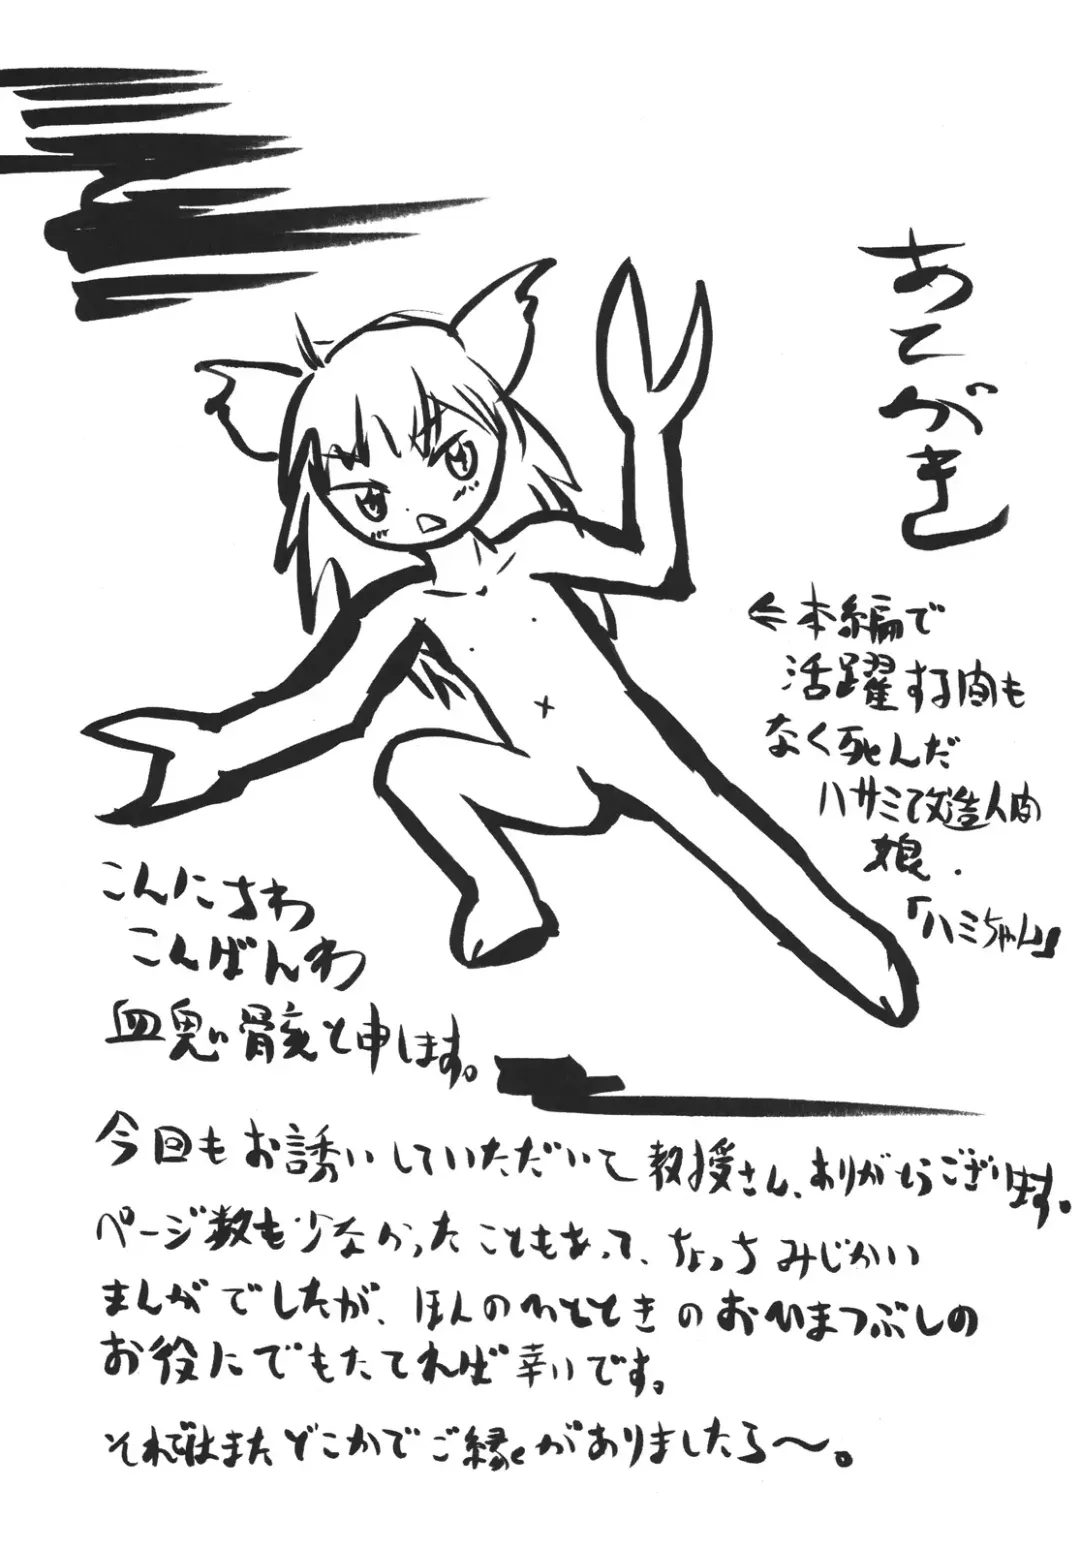 あとがき
←本編で
活躍する間も
なく死んだ
ハサミ改造人間
娘.
「ハミちゃん」
こんにちわ
こんばんわ
血鬼骨亥と申します。
今回もお誘いしていただいて教授さん、ありがとうございます。
ページ数も少なかったこともあって、ちょっちみじかい
まんがでしたが、ほんのひとときのおひまつぶしの
お役にでもたてれば幸いです。
それではまたどこかでご縁がありましたら〜。